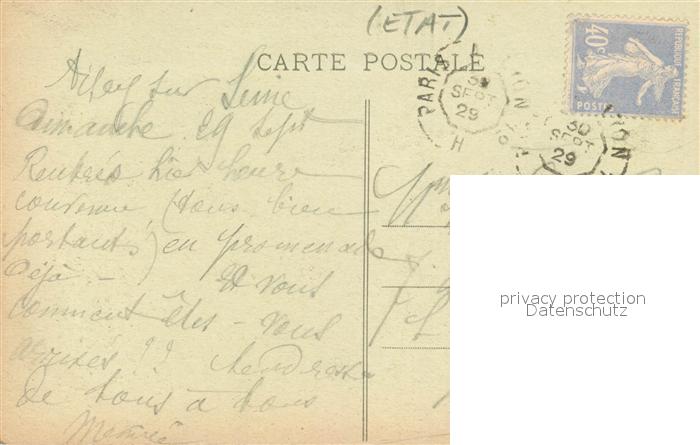 (ETAT)
CARTE POSTALE
40c
REPUBLIQUE FRANÇAISE
POSTES
PARIS
30
SEPT
29
H
30
SEPT
29
sur Seine
dimanche 29 Sept
Rentrés hier heure
convenue, (tous bien
portants) en promenade
déjà - Et vous
comment êtes-vous
arrivés !! tendresses
de tous à tous
privacy protection
Datenschutz